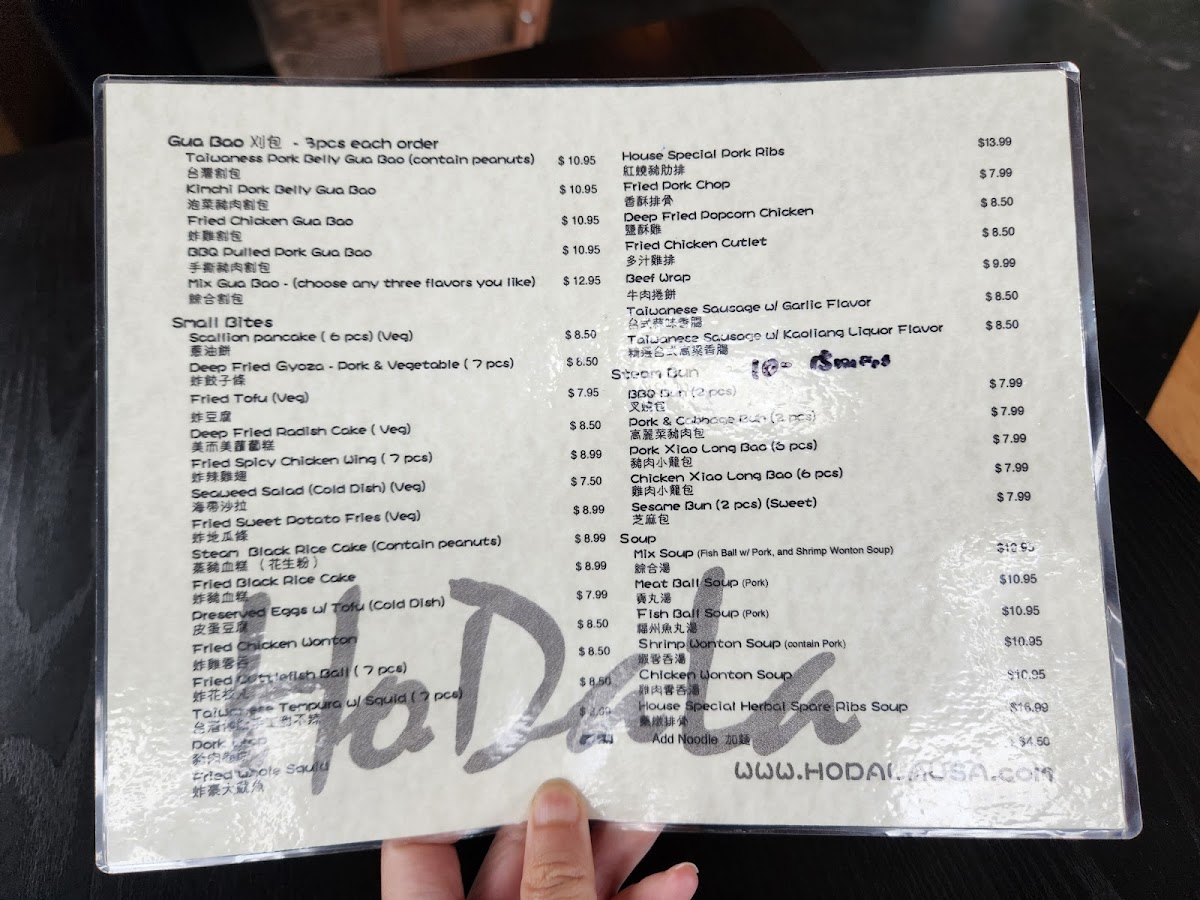 Gua Bao 刈包 - 3pcs each order
Taiwaness Pork Belly Gua Bao (contain peanuts) $ 10.95
台灣割包
Kimchi Pork Belly Gua Bao $ 10.95
泡菜豬肉割包
Fried Chicken Gua Bao $ 10.95
炸雞割包
BBQ Pulled Pork Gua Bao $ 10.95
手撕豬肉割包
Mix Gua Bao - (choose any three flavors you like) $ 12.95
綜合割包
Small Bites
Scallion pancake ( 6 pcs) (Veg) $ 8.50
蔥油餅
Deep Fried Gyoza - Pork & Vegetable ( 7 pcs) $ 8.50
炸餃子條
Fried Tofu (Veg) $ 7.95
炸豆腐
Deep Fried Radish Cake ( Veg) $ 8.50
美而美蘿蔔糕
Fried Spicy Chicken Wing ( 7 pcs) $ 8.99
炸辣雞翅
Seaweed Salad (Cold Dish) (Veg) $ 7.50
海帶沙拉
Fried Sweet Potato Fries (Veg) $ 8.99
炸地瓜條
Steam Black Rice Cake (Contain peanuts) $ 8.99
蒸豬血糕 (花生粉)
Fried Black Rice Cake $ 8.99
炸豬血糕
Preserved Eggs w/ Tofu (Cold Dish) $ 7.99
皮蛋豆腐
Fried Chicken Wonton $ 8.50
炸雞雲吞
Fried Cuttlefish Ball ( 7 pcs) $ 8.50
炸花枝丸
Taiwanese Tempura w/ Squid ( 7 pcs) $ 8.50
Pork
Fried Whole Squid
House Special Pork Ribs $13.99
紅燒豬肋排
Fried Pork Chop $ 7.99
香酥排骨
Deep Fried Popcorn Chicken $ 8.50
鹽酥雞
Fried Chicken Cutlet $ 8.50
多汁雞排
Beef Wrap $ 9.99
牛肉捲餅
Taiwanese Sausage w/ Garlic Flavor $ 8.50
台式蒜味香腸
Taiwanese Sausage w/ Kaoliang Liquor Flavor $ 8.50
精選台式高粱香腸
Steam Bun
BBQ Bun (2 pcs) $ 7.99
叉燒包
Pork & Cabbage Bun (2 pcs) $ 7.99
高麗菜豬肉包
Pork Xiao Long Bao (6 pcs) $ 7.99
豬肉小籠包
Chicken Xiao Long Bao (6 pcs) $ 7.99
雞肉小籠包
Sesame Bun (2 pcs) (Sweet) $ 7.99
芝麻包
Soup
Mix Soup (Fish Ball w/ Pork, and Shrimp Wonton Soup) $10.95
綜合湯
Meat Ball Soup (Pork) $10.95
貢丸湯
Fish Ball Soup (Pork) $10.95
福州魚丸湯
Shrimp Wonton Soup (contain Pork) $10.95
蝦雲吞湯
Chicken Wonton Soup $10.95
雞肉雲吞湯
House Special Herbal Spare Ribs Soup $16.99
藥燉排骨
Add Noodle 加麵 $4.50
HoDaLa
WWW.HODALAUSA.COM